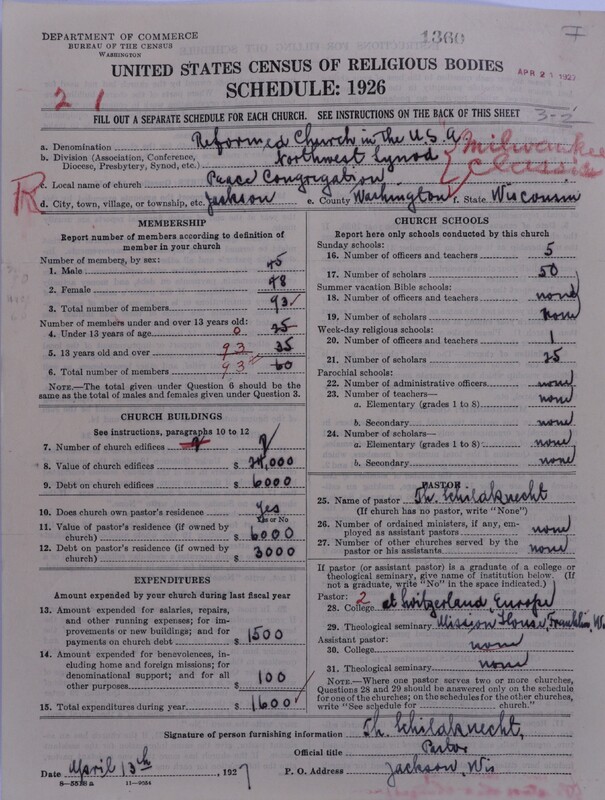 DEPARTMENT OF COMMERCE
BUREAU OF THE CENSUS
WASHINGTON
1360
7
UNITED STATES CENSUS OF RELIGIOUS BODIES
APR 21 1927
SCHEDULE: 1926
2 1
FILL OUT A SEPARATE SCHEDULE FOR EACH CHURCH. SEE INSTRUCTIONS ON THE BACK OF THIS SHEET
3-2
a. Denomination Reformed Church in the U.S.A.
b. Division (Association, Conference, Diocese, Presbytery, Synod, etc.) Northwest Synod
Milwaukee Classis
R
c. Local name of church Peace Congregation
d. City, town, village, or township, etc. Jackson e. County Washington f. State Wisconsin
MEMBERSHIP
Report number of members according to definition of member in your church
Number of members, by sex:
1. Male 45
2. Female 48
3. Total number of members 93
Number of members under and over 13 years old:
4. Under 13 years of age 0 25
5. 13 years old and over 93 35
6. Total number of members 93 60
NOTE.—The total given under Question 6 should be the same as the total of males and females given under Question 3.
CHURCH BUILDINGS
See instructions, paragraphs 10 to 12
7. Number of church edifices
8. Value of church edifices $ 24,000
9. Debt on church edifices $ 6000
10. Does church own pastor's residence Yes
Yes or No
11. Value of pastor's residence (if owned by church) $ 6000
12. Debt on pastor's residence (if owned by church) $ 3000
EXPENDITURES
Amount expended by your church during last fiscal year
13. Amount expended for salaries, repairs, and other running expenses; for improvements or new buildings; and for payments on church debt $ 1500
14. Amount expended for benevolences, including home and foreign missions; for denominational support; and for all other purposes $ 100
15. Total expenditures during year $ 1600
CHURCH SCHOOLS
Report here only schools conducted by this church
Sunday schools:
16. Number of officers and teachers 5
17. Number of scholars 50
Summer vacation Bible schools:
18. Number of officers and teachers none
19. Number of scholars none
Week-day religious schools:
20. Number of officers and teachers 1
21. Number of scholars 25
Parochial schools:
22. Number of administrative officers none
23. Number of teachers—
a. Elementary (grades 1 to 8) none
b. Secondary none
24. Number of scholars—
a. Elementary (grades 1 to 8) none
b. Secondary none
PASTOR
25. Name of pastor Th. Schildknecht
(If church has no pastor, write "None")
26. Number of ordained ministers, if any, employed as assistant pastors none
27. Number of other churches served by the pastor or his assistants none
If pastor (or assistant pastor) is a graduate of a college or theological seminary, give name of institution below. (If not a graduate, write "No" in the space indicated.)
Pastor: 2
28. College at Switzerland Europe
29. Theological seminary Mission House, Franklin, Wis
Assistant pastor:
30. College none
31. Theological seminary none
NOTE.—Where one pastor serves two or more churches, Questions 28 and 29 should be answered only on the schedule for one of the churches; on the schedules for the other churches, write "See schedule for church."
Signature of person furnishing information Th. Schildknecht,
Official title Pastor
Date April 13th, 1927 P. O. Address Jackson, Wis
8—5518 a 11—9534